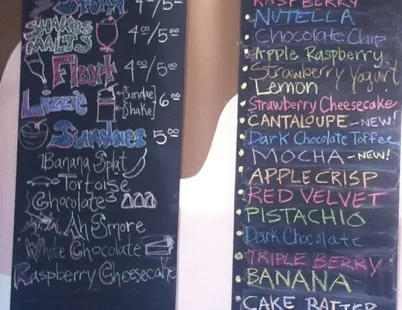 4⁰⁰/5⁰⁰
SHAKES
MALTS 4⁰⁰/5⁰⁰
Float 4⁰⁰/5⁰⁰
[Sundae
Shake] 6⁰⁰
Sundaes 5⁰⁰
Banana Split
Tortoise
Chocolate³
Ah S'more
White Chocolate
Raspberry Cheesecake
RASPBERRY
NUTELLA
Chocolate Chip
Apple Raspberry
Strawberry Yogurt
Lemon
Strawberry Cheesecake
CANTALOUPE -NEW!
Dark Chocolate Toffee
MOCHA -NEW!
APPLE CRISP
RED VELVET
PISTACHIO
Dark Chocolate
TRIPLE BERRY
BANANA
CAKE BATTER